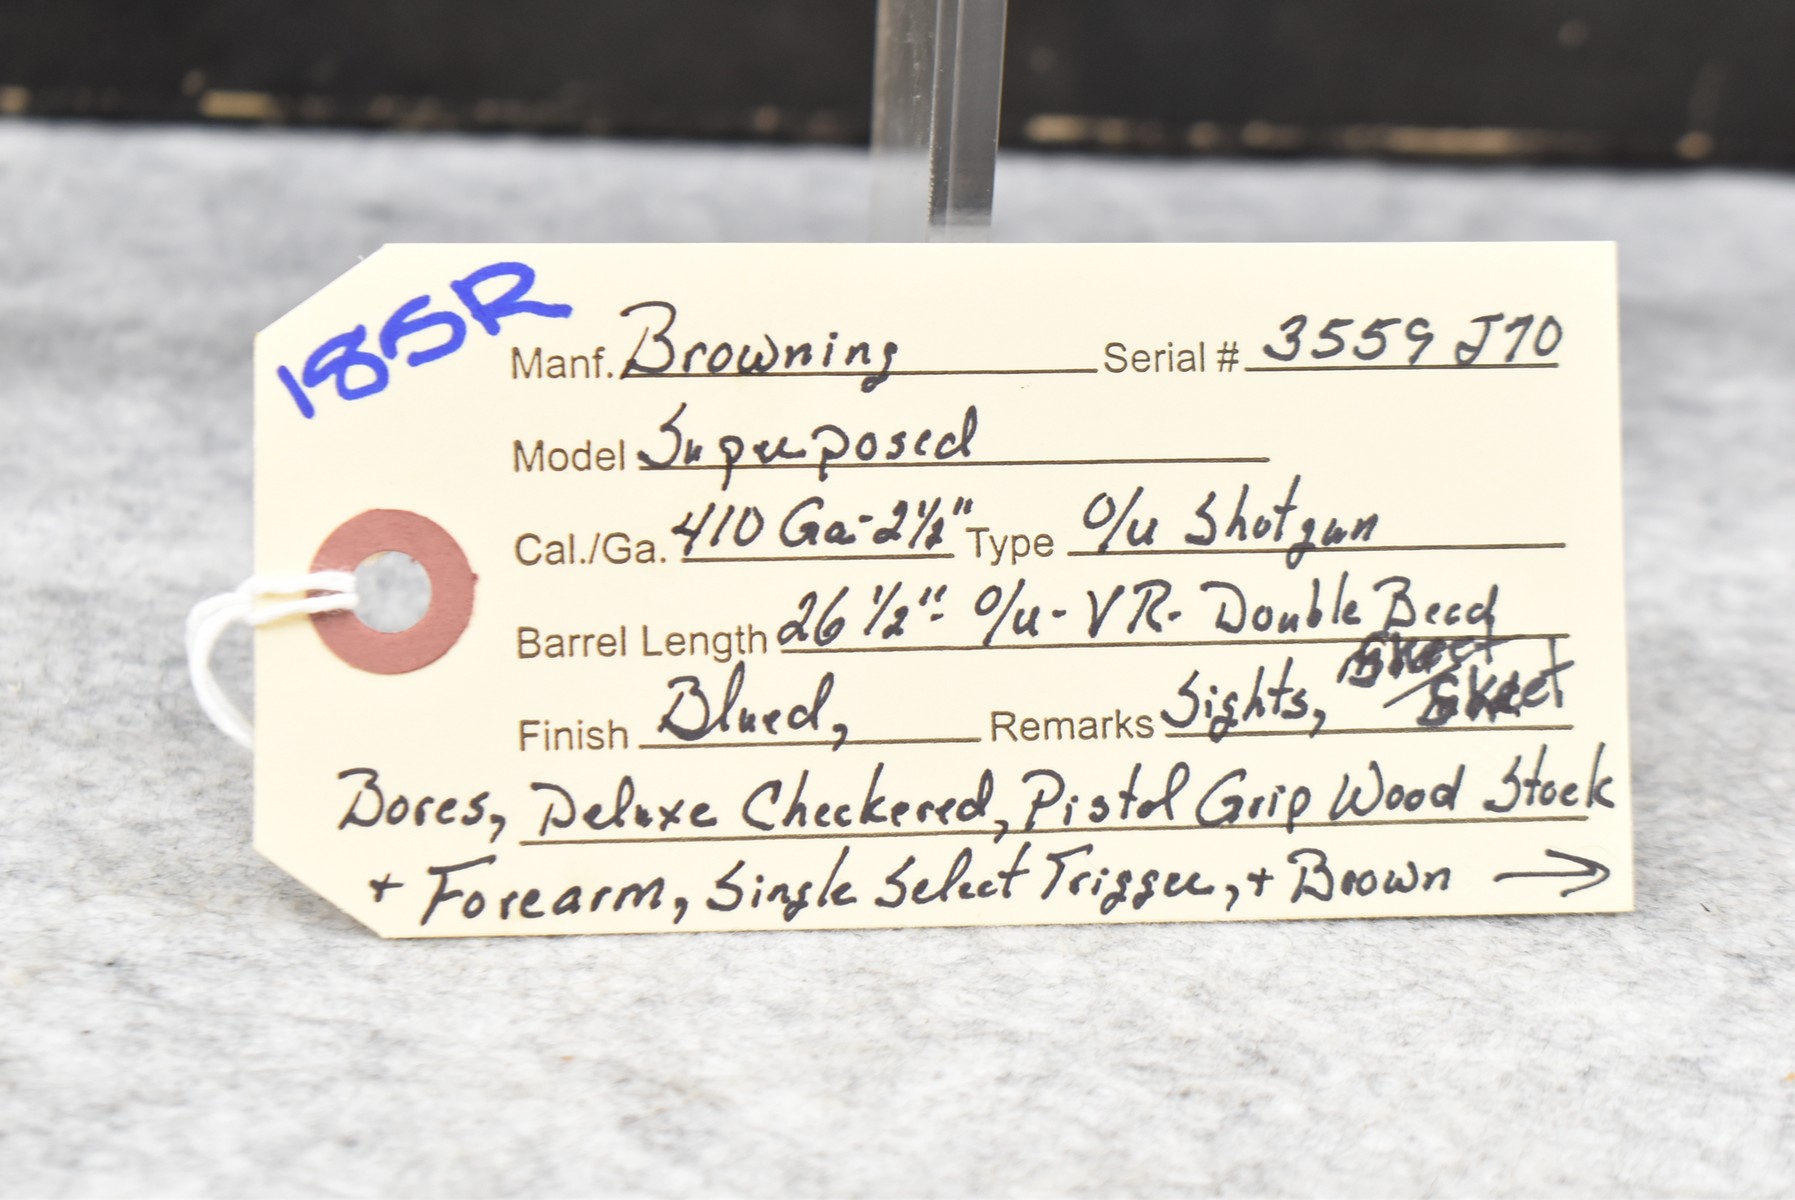 185R
Manf. Browning Serial # 3559 J70
Model Superposed
Cal./Ga. 410 Ga-2½" Type O/U Shotgun
Barrel Length 26 ½"- O/U- VR- Double Bead
Finish Blued, Remarks Sights, Skeet / Skeet
Bores, Deluxe Checkered, Pistol Grip Wood Stock
+ Forearm, Single Select Trigger, + Brown →